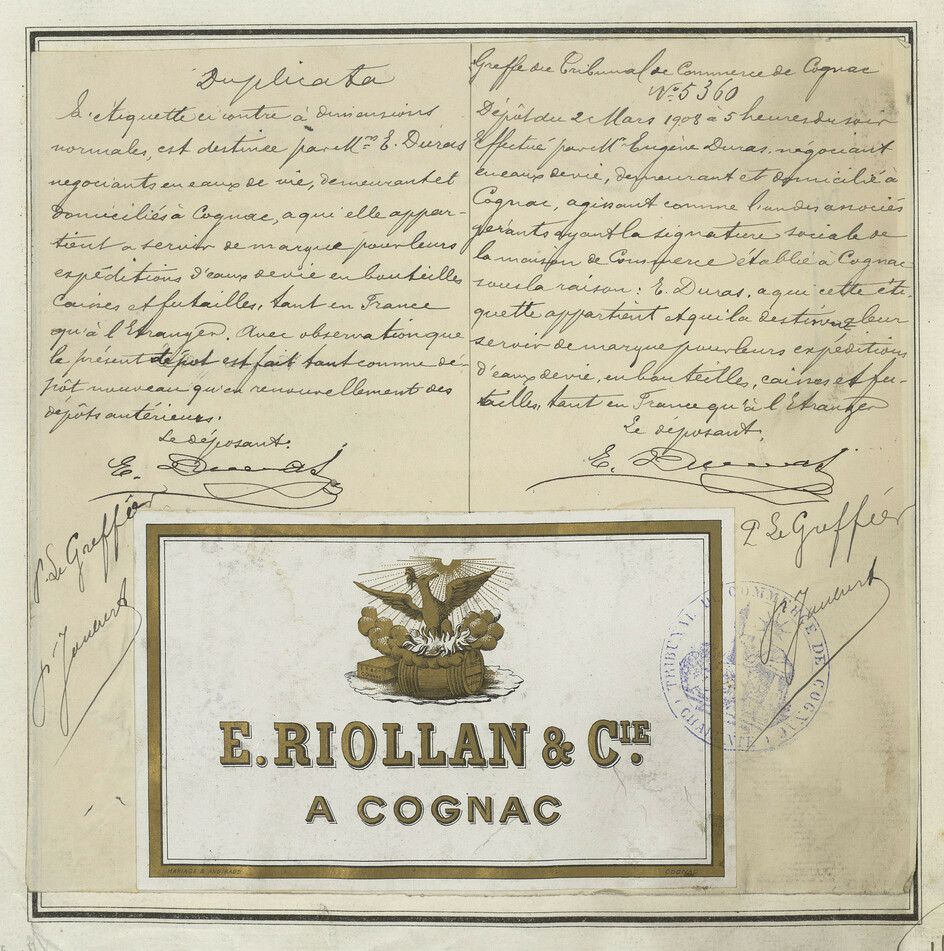 Duplicata
L'étiquette ci contre à dimensions
normales, est destinée par Mrs E. Duras
negociants en eaux de vie, demeurant et
domiciliés à Cognac, a qui elle appar-
tient a servir de marque pour leurs
expéditions d'eaux de vie en bouteilles
Caisses et futailles, tant en France
qu'à l'Etranger. Avec observation que
le présent dépot est fait tant comme dé-
pôt nouveau qu'en renouvellement des
dépôts antérieurs.
Le déposant.
E. Duras
P. Le Greffier
Greffe du Tribunal de Commerce de Cognac
No 5360
Dépôt du 2 Mars 1908 à 5 heures du soir
Effectué par Mr Eugène Duras, négociant
en eaux de vie, demeurant et domicilié à
Cognac, agissant comme l'un des associés
gérants ayant la signature sociale de
la maison de Commerce établie à Cognac
sous la raison: E. Duras, a qui cette éti-
quette appartient et qui la destinent leur
servir de marque pour leurs expéditions
d'eaux de vie, en bouteilles, caisses et fu-
tailles, tant en France qu'à l'Etranger
Le déposant,
E. Duras
P Le Greffier
TRIBUNAL DE COMMERCE DE COGNAC
E. RIOLLAN & CIE.
A COGNAC
COGNAC